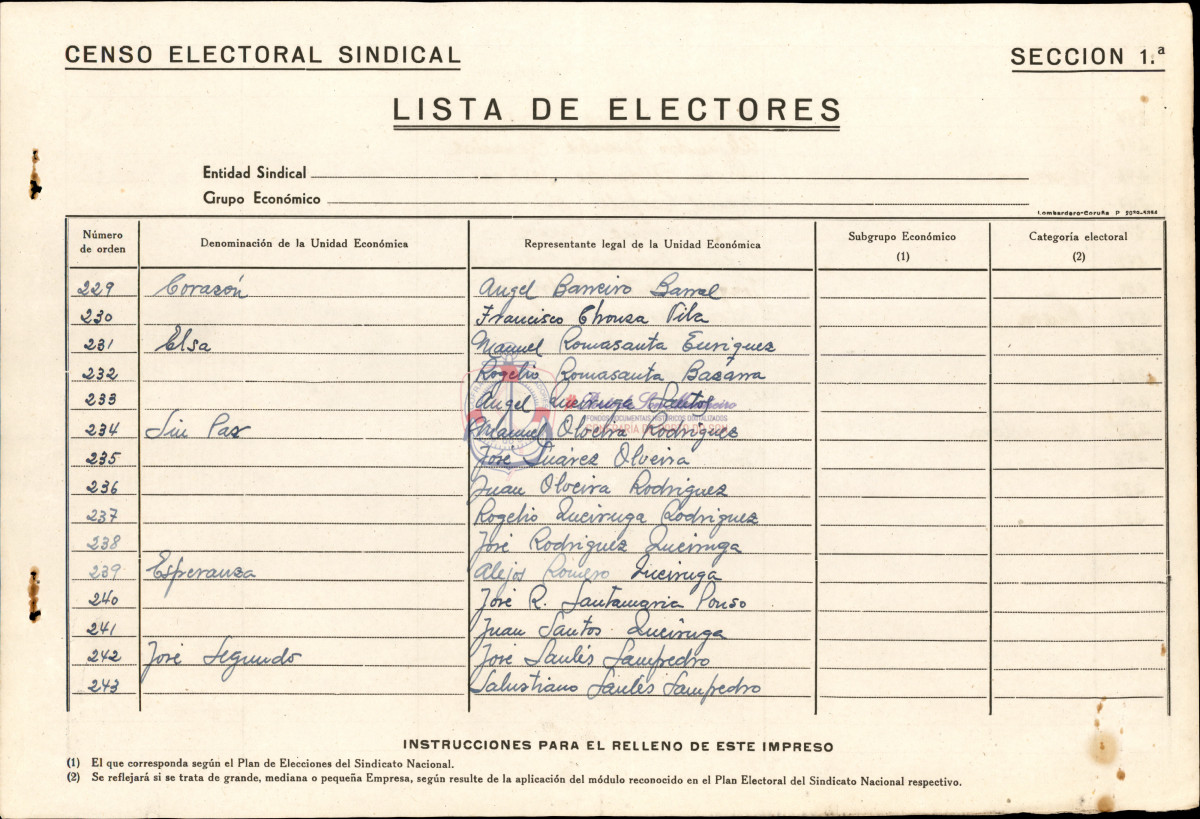 CENSO ELECTORAL SINDICAL
SECCION 1.ª
LISTA DE ELECTORES
Entidad Sindical
Grupo Económico
Lombardero-Coruña P
Número de orden | Denominación de la Unidad Económica | Representante legal de la Unidad Económica | Subgrupo Económico (1) | Categoría electoral (2)
229 Corazón Angel Barreiro Barral
230 Francisco Chouza Vila
231 Elsa Manuel Romasanta Enriquez
232 Rogelio Romasanta Bazarra
233 Angel Queiruga Santos
234 Sin Par Manuel Olveira Rodriguez
235 José Suárez Olveira
236 Juan Olveira Rodriguez
237 Rogelio Queiruga Rodriguez
238 José Rodriguez Queiruga
239 Esperanza Alejos Romero Queiruga
240 José R. Santamaria Pouso
241 Juan Santos Queiruga
242 José Segundo José Saulés Sampedro
243 Salustiano Saulés Sampedro
FONDOS DOCUMENTAIS HISTÓRICOS DIXITALIZADOS
INSTRUCCIONES PARA EL RELLENO DE ESTE IMPRESO
(1) El que corresponda según el Plan de Elecciones del Sindicato Nacional.
(2) Se reflejará si se trata de grande, mediana o pequeña Empresa, según resulte de la aplicación del módulo reconocido en el Plan Electoral del Sindicato Nacional respectivo.